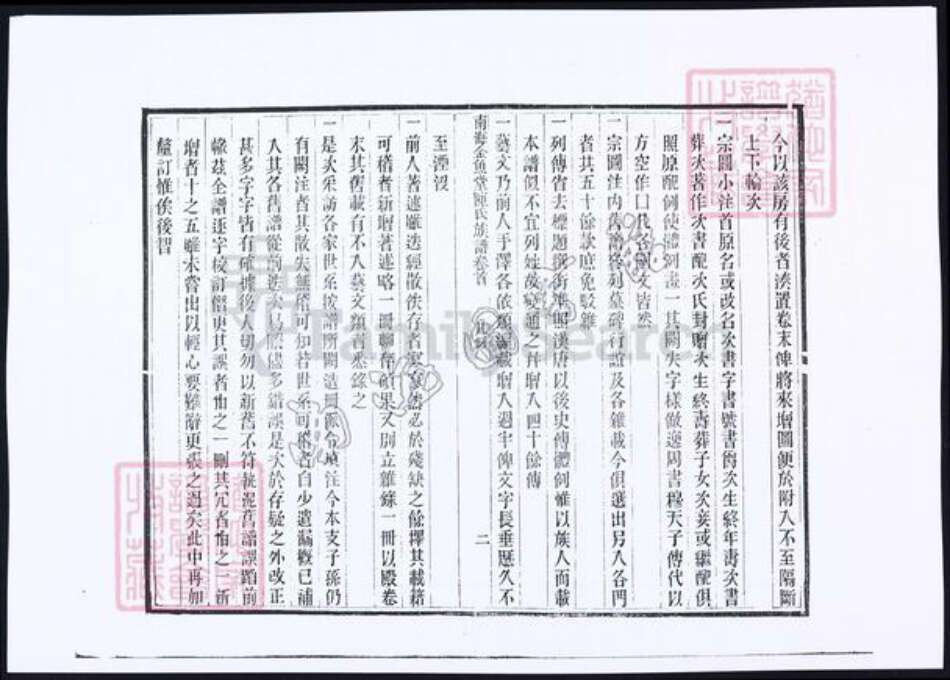 今以該房有後者湊置卷末俾將來增圖便於附入不至隔斷
上下輪次
一宗圖小注首原名或改名次書字書號書爵次生終年壽次書
葬次著作次書配次氏封贈次生終壽葬子女次妾或繼配俱
照原配例使體例畫一其闕失字樣倣逸周書穆天子傳代以
方空作口我各圖文皆然
一宗圖注內舊譜各列墓碑行誼及各雜載今俱選出另入各門
者共五十餘款庶免駁雜
一列傳省去標題銜準照漢唐以後史傳體例惟以族人而載
本譜似不宜列姓故變通之并增入四十餘傳
一藝文乃前人手澤各依類編載增入過半俾文字長垂歷久不
南海金魚堂陳氏族譜卷首
二
至湮沒
一前人著述雖迭經散佚存者寥寥然必於殘缺之餘擇其載籍
可稽者新增著述略一冊聊存碩果又別立雜錄一冊以殿卷
末其舊載有不入藝文類者悉錄之
一是次采訪各家世系按譜所闕造冊派令填注今本支子孫仍
有闕注者其散失無稽可知若世系可稽者自少遺漏概已補
入其各舊譜從前迭次易版儘多錯誤是次於存疑之外改正
甚多字字皆有確據後人切勿以新舊不符執泥舊譜誤蹈前
轍茲全譜逐字校訂僭更其誤者十之一刪其冗者十之二新
增者十之五雖未嘗出以輕心要難辭更張之過矣此中再加
釐訂惟俟後賢